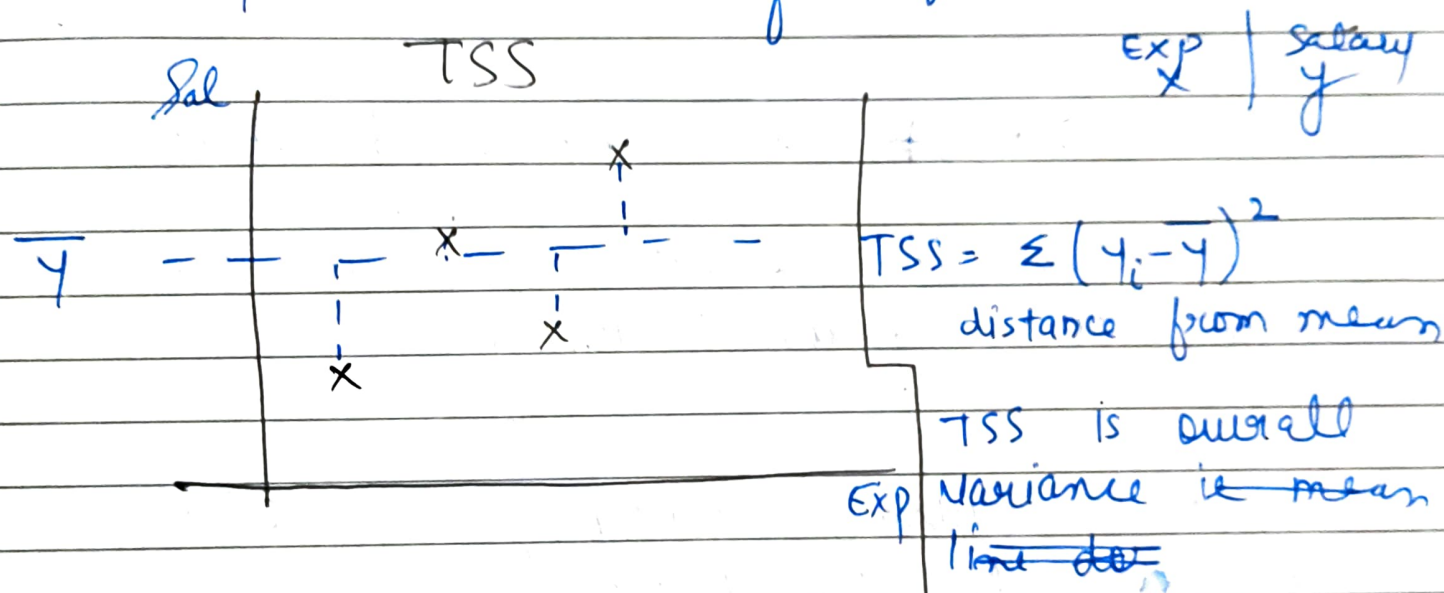 TSS
Exp | Salary
x | y
Sal
y̅
TSS = Σ(yᵢ - y̅)²
distance from mean
TSS is overall
Variance is mean
line do
Exp